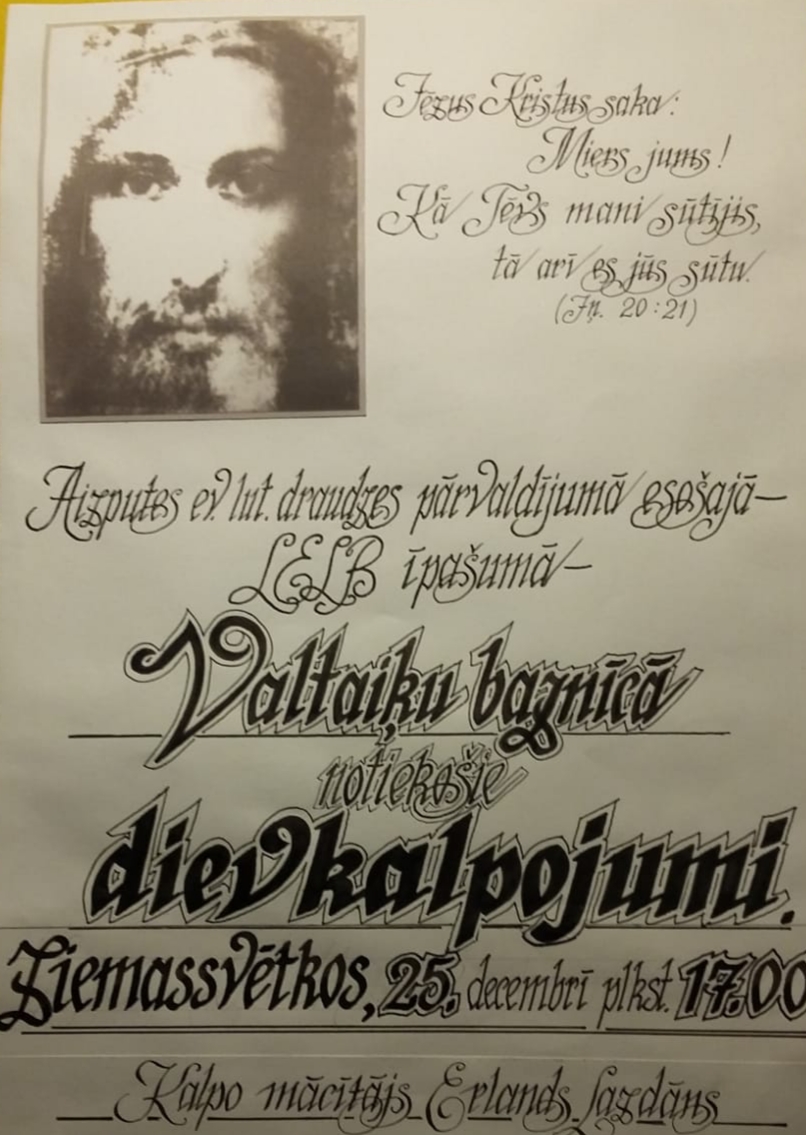 Jēzus Kristus saka:
Miers jums!
Kā Tēvs mani sūtījis,
tā arī es jūs sūtu.
(Jņ. 20:21)
Aizputes ev. lut. draudzes pārvaldījumā esošajā—
LELB īpašumā—
Valtaiķu baznīcā
notiekošie
dievkalpojumi.
Ziemassvētkos, 25. decembrī plkst. 17.00
Kalpo mācītājs Erlands Lazdāns